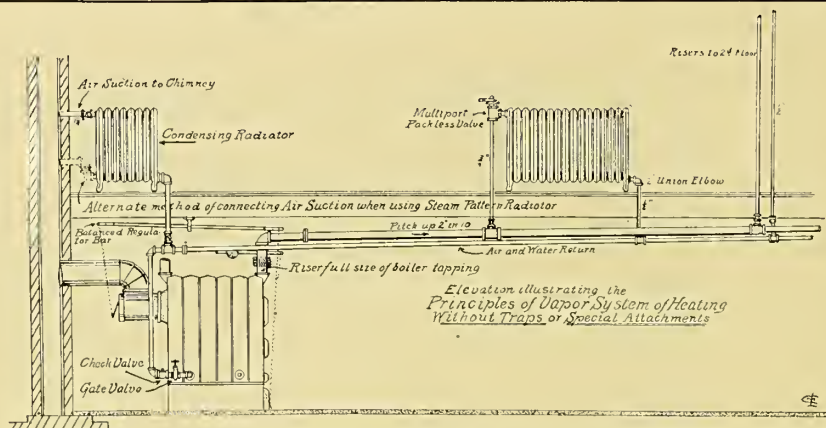 Risers to 2d Floor
Air Suction to Chimney
Multiport
Packless Valve
Condensing Radiator
Union Elbow
Alternate method of connecting Air Suction when using Steam Pattern Radiator
Balanced Regula-
tor Bar
Pitch up 2" in 10
Air and Water Return
Riser full size of boiler tapping
Elevation illustrating the
Principles of Vapor System of Heating
Without Traps or Special Attachments
Check Valve
Gate Valve